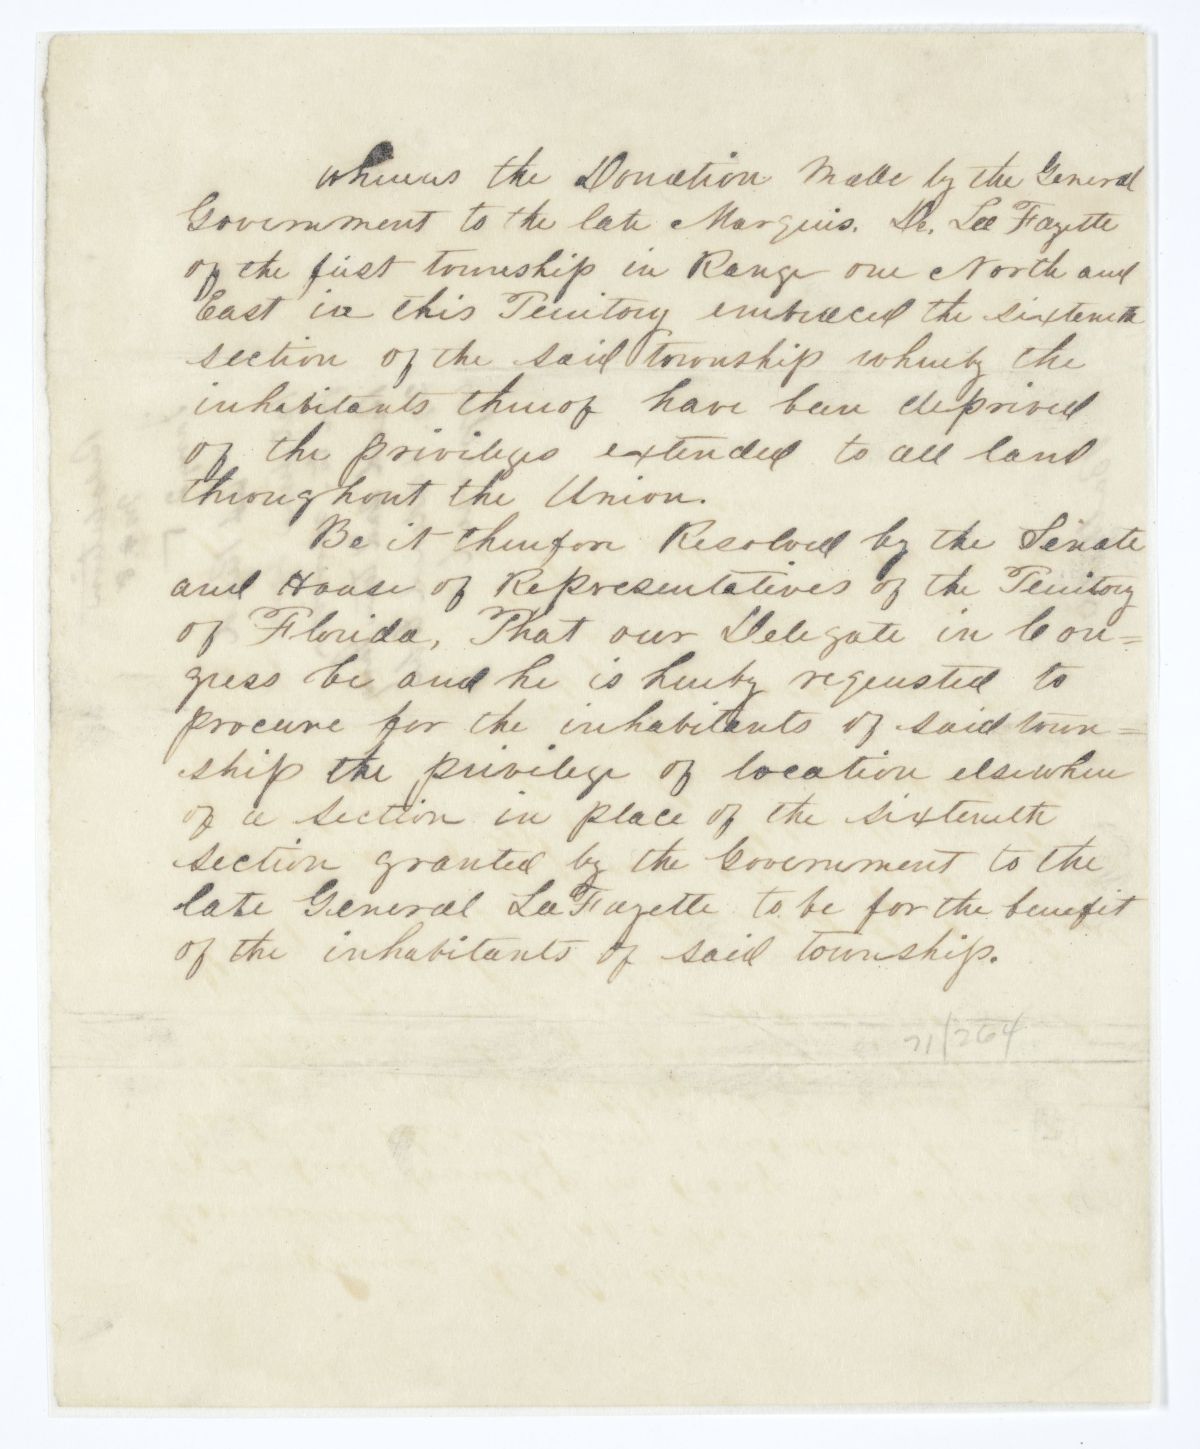 whereas the Donation Made by the General
Government to the late Marquis. De. La Fayette
of the first township in Range one North and
East in this Territory embraced the sixteenth
section of the said township whereby the
inhabitants thereof have been deprived
of the privileges extended to all land
throughout the Union.
Be it therefore Resolved by the Senate
and House of Representatives of the Territory
of Florida, That our Delegate in Con=
gress be and he is hereby requested to
procure for the inhabitants of said town=
ship the privilege of location elsewhere
of a section in place of the sixteenth
section granted by the Government to the
late General La Fayette to be for the benefit
of the inhabitants of said township.
71/264